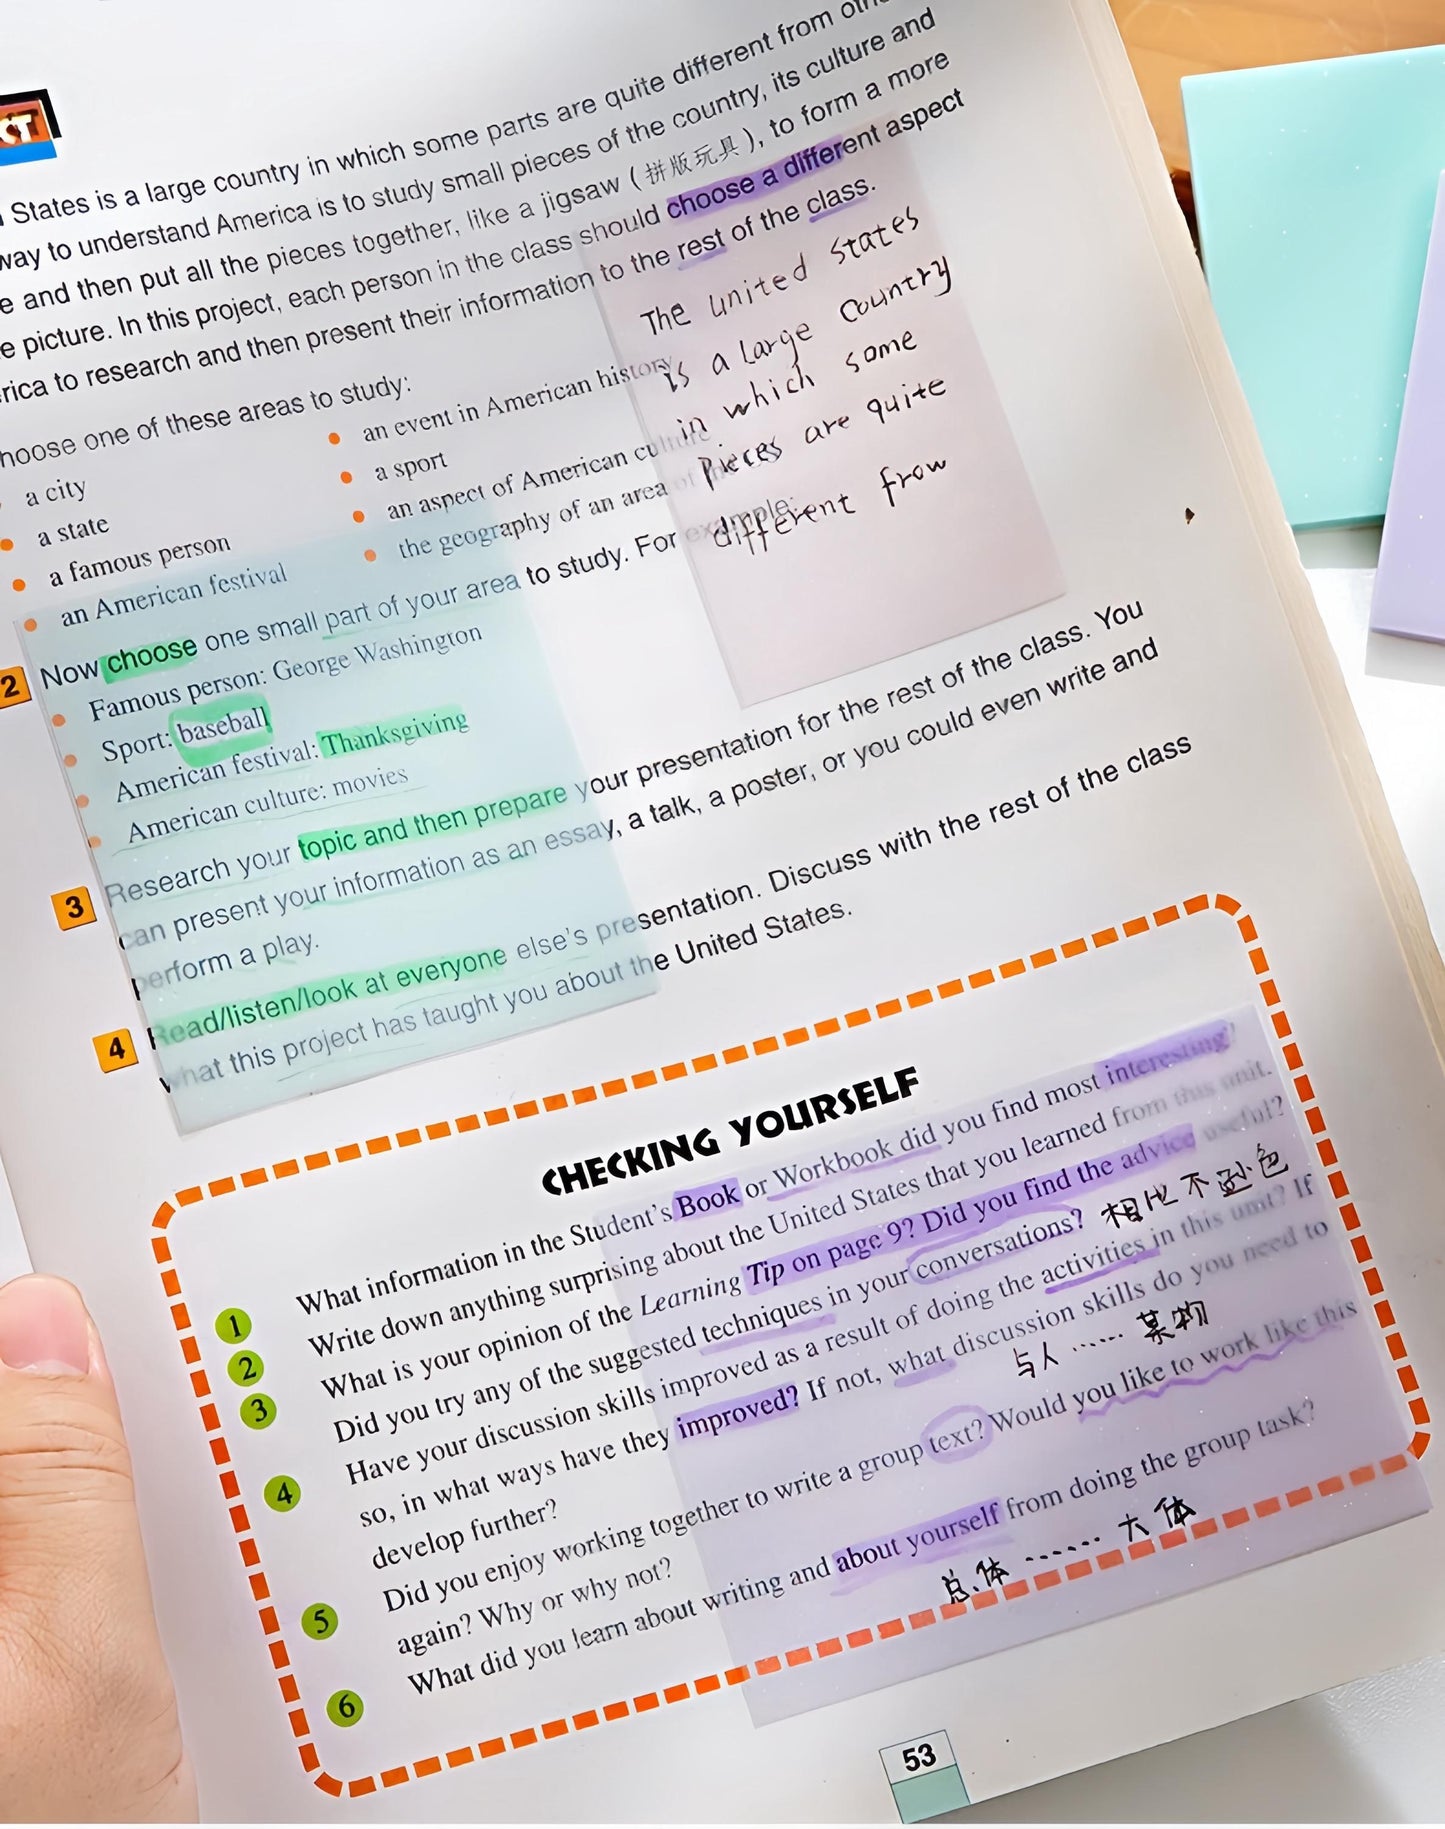 CT
States is a large country in which some parts are quite different from
way to understand America is to study small pieces of the country, its culture and
e and then put all the pieces together, like a jigsaw (拼版玩具), to form a more
e picture. In this project, each person in the class should choose a different aspect
rica to research and then present their information to the rest of the class.
hoose one of these areas to study:
a city
a state
a famous person
an American festival
an event in American history
a sport
an aspect of American culture
the geography of an area of
The united states
is a large country
in which some
pieces are quite
different from
2 Now choose one small part of your area to study. For example:
Famous person: George Washington
Sport: baseball
American festival: Thanksgiving
American culture: movies
3 Research your topic and then prepare your presentation for the rest of the class. You
can present your information as an essay, a talk, a poster, or you could even write and
perform a play.
4 Read/listen/look at everyone else's presentation. Discuss with the rest of the class
what this project has taught you about the United States.
CHECKING YOURSELF
1 What information in the Student's Book or Workbook did you find most interesting?
2 Write down anything surprising about the United States that you learned from this unit.
3 What is your opinion of the Learning Tip on page 9? Did you find the advice useful?
Did you try any of the suggested techniques in your conversations?
相比不逊色
4 Have your discussion skills improved as a result of doing the activities in this unit? If
so, in what ways have they improved? If not, what discussion skills do you need to
develop further?
与人……某物
5 Did you enjoy working together to write a group text? Would you like to work like this
again? Why or why not?
6 What did you learn about writing and about yourself from doing the group task?
总体……大体
53